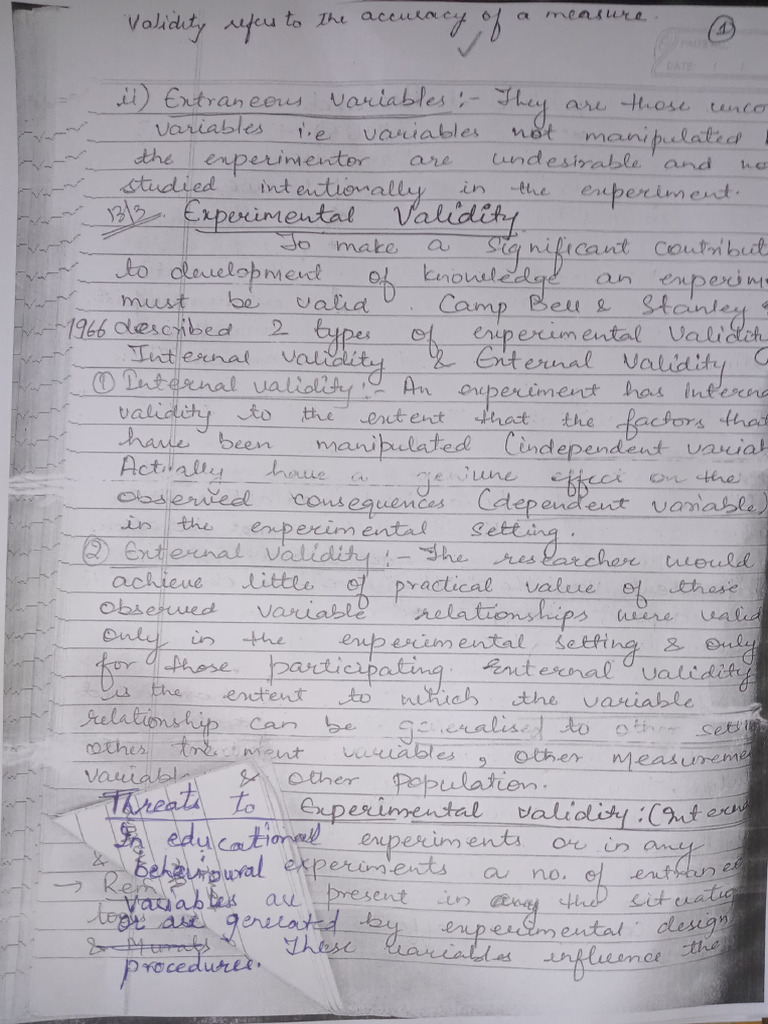 Validity refers to the accuracy of a measure.
1
DATE:
ii) Extraneous Variables :- They are those unco
variables i.e variables not manipulated
the experimentor are undesirable and no
studied intentionally in the experiment.
13/3. Experimental Validity
To make a significant contribut
to development of knowledge an experim
must be valid. Camp Bell & Stanley
1966 described 2 types of experimental Validit
Internal Validity & External Validity
① Internal validity :- An experiment has Interna
validity to the extent that the factors that
have been manipulated (independent variab
Actually have a geniune effect on the
observed consequences (dependent variable)
in the experimental setting.
② External Validity :- The researcher would
achieve little of practical value of these
observed variable relationships were valid
only in the experimental setting & only
for those participating. External validity
is the extent to which the variable
relationship can be generalised to other setti
other treatment variables, other measureme
variabl & other population.
Threats to Experimental validity: (Intern
In educational experiments or in any
& behavioural experiments a no. of extrane
→ Rem variables are present in the situatio
or are generated by experimental design
& These variables influence the
procedures.